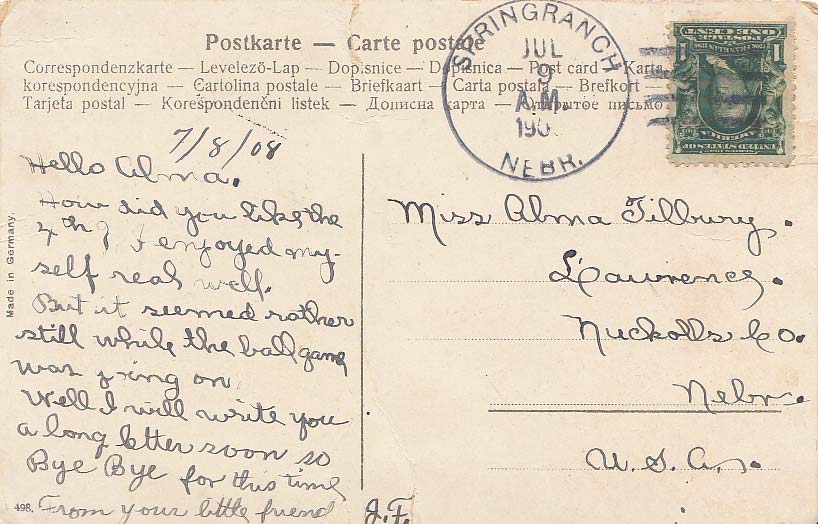 Postkarte — Carte postale
Correspondenzkarte — Levelező-Lap — Dopisnice — Dopisnica — Post card — Karta
korespondencyjna — Cartolina postale — Briefkaart — Carta postala — Brefkort —
Tarjeta postal — Korespondenčni listek — Дописна карта — Открытое письмо
SPRINGRANCH
JUL
9
A.M.
190
NEBR.
7/8/08
Hello Alma.
How did you like the
4th? I enjoyed my-
self real well.
But it seemed rather
still while the ball game
was going on
Well I will write you
a long letter soon so
Bye Bye for this time
From your little friend
J.F.
Miss Alma Tilbury.
Lawrence.
Nuckolls Co.
Nebr.
U.S.A.
Made in Germany.
498.
POSTAGE
ONE CENT
1
1
UNITED STATES OF
AMERICA